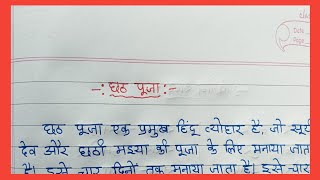 Date
Page
-: छठ पूजा :-
छठ पूजा एक प्रमुख हिंदू त्योहार है, जो सूर्य
देव और छठी मइया की पूजा के लिए मनाया जाता
है। इसे चार दिनों तक मनाया जाता है। इसे चार